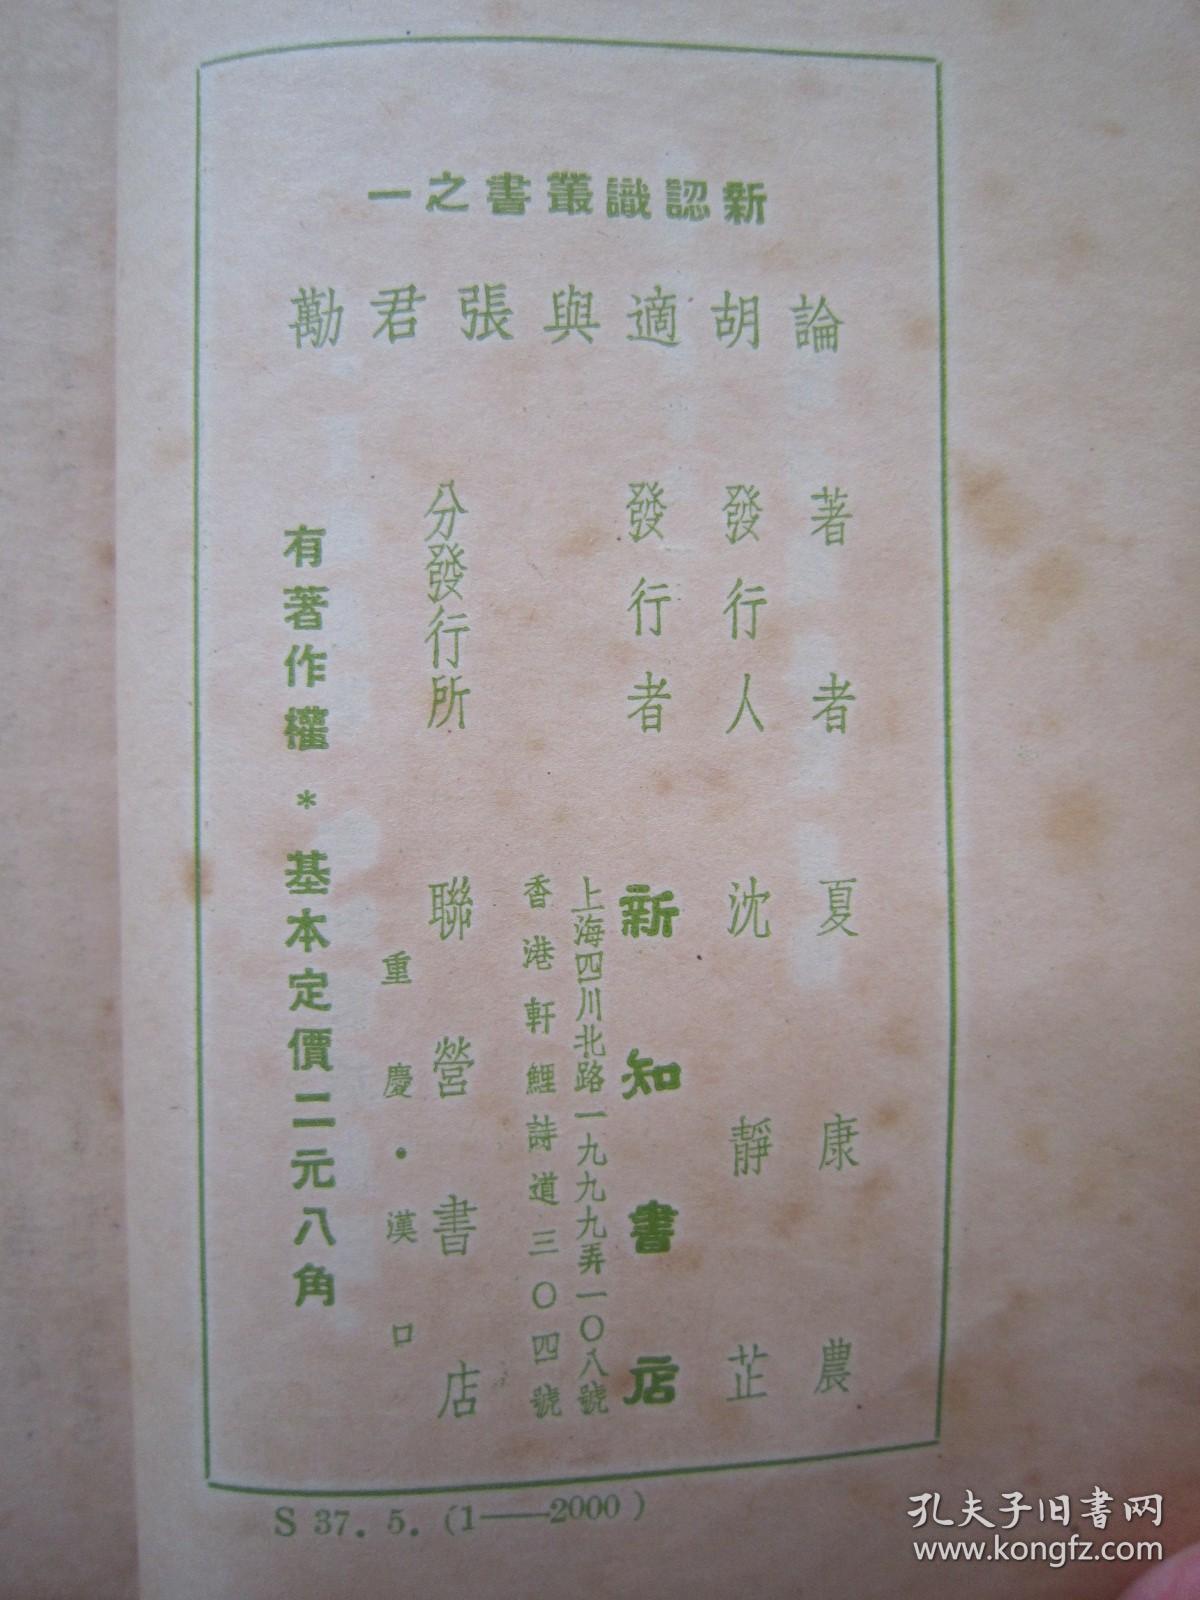 新認識叢書之一
論胡適與張君勱
著者 夏康農
發行人 沈靜芷
發行者 新知書店
上海四川北路一九九九弄一〇八號
香港軒鯉詩道三〇四號
分發行所 聯營書店
重慶·漢口
有著作權*基本定價二元八角
S 37. 5. (1——2000)
孔夫子旧书网
www.kongfz.com